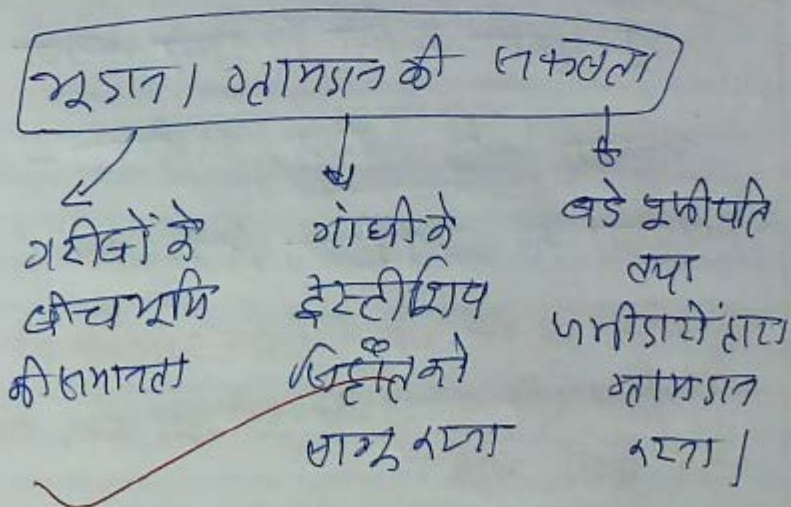 भूदान / ग्रामदान की सफलता
गरीबों के
बीच भूमि
की समानता
गांधी के
ट्रस्टीशिप
सिद्धांत को
लागू करना
बडे पूंजीपति
तथा
जमीदारों द्वारा
ग्रामदान
करना |